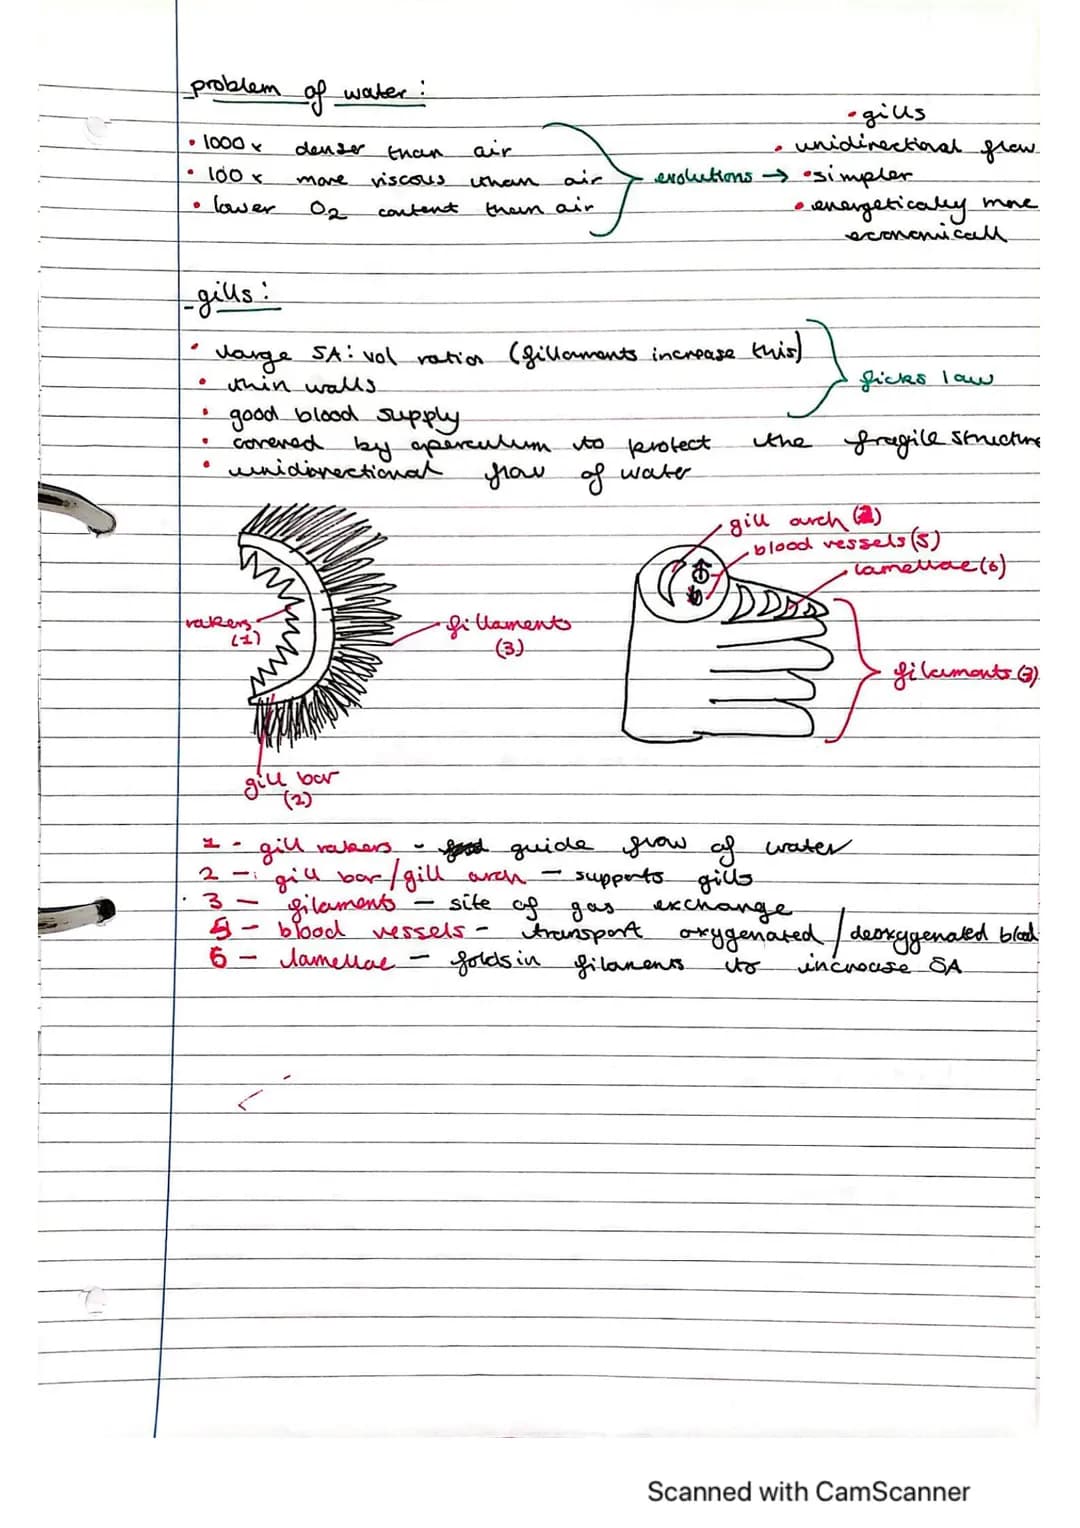 problem of water:
• 1000x denser than air
• 100x more viscous than air
• lower O2 content than air
evolutions →
• gills
• unidirectional flow
• simpler
• energetically more
economicall
gills:
• large SA:vol ratios (fillaments increase this)
• thin walls
• good blood supply
ficks law
• covered by operculum to protect the fragile structure
• unidirectional flow of water
rakers
(1)
fillaments
(3)
gill bar
(2)
gill arch (2)
blood vessels (5)
lamellae (6)
filaments (3)
1 - gill rakers - guide flow of water
2 - gill bar/gill arch - supports gills
3 - filaments - site of gas exchange
5 - blood vessels - transport oxygenated/deoxygenated blood
6 - lamellae - folds in filaments to increase SA
Scanned with CamScanner